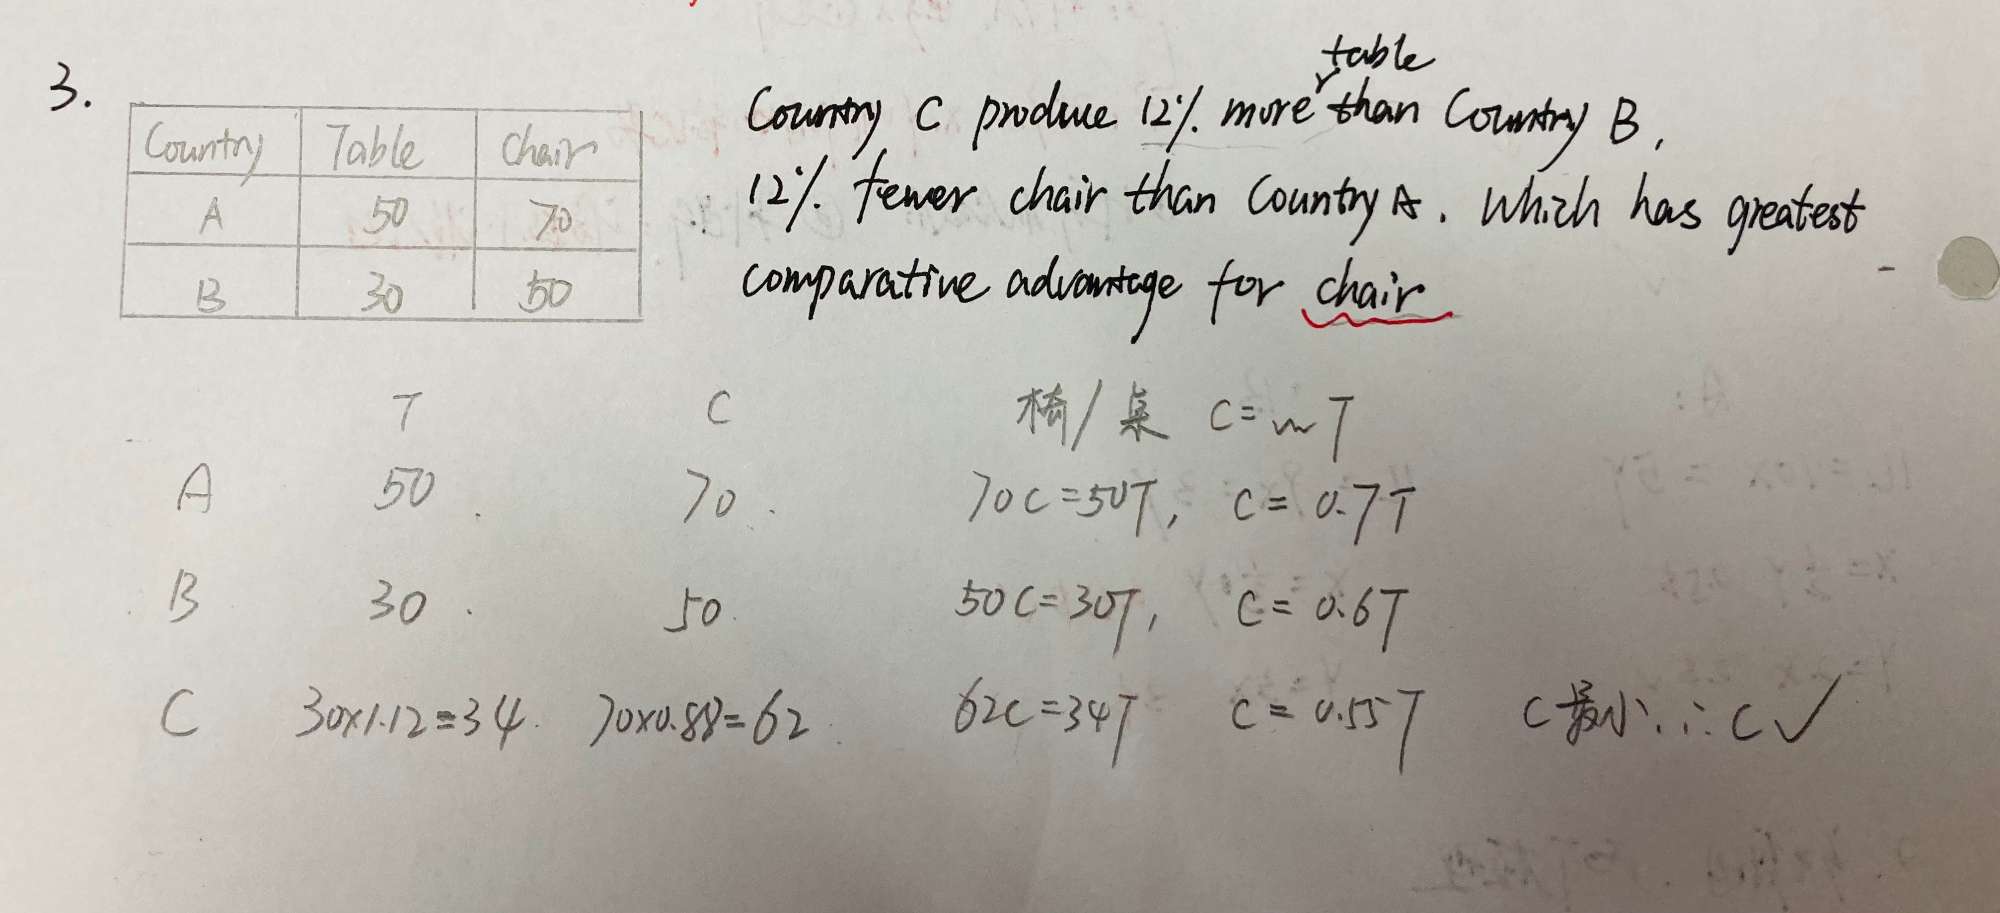 3.
Country Table Chair
A 50 70
B 30 50
table
Country C produce 12% more than Country B,
12% fewer chair than Country A. Which has greatest
comparative advantage for chair
T C 椅/桌 C= T
A 50 70 70C=50T, C=0.7T
B 30 50 50C=30T, C=0.6T
C 30×1.12=34 70×0.88=62 62C=34T C=0.55T C最小∴C✓